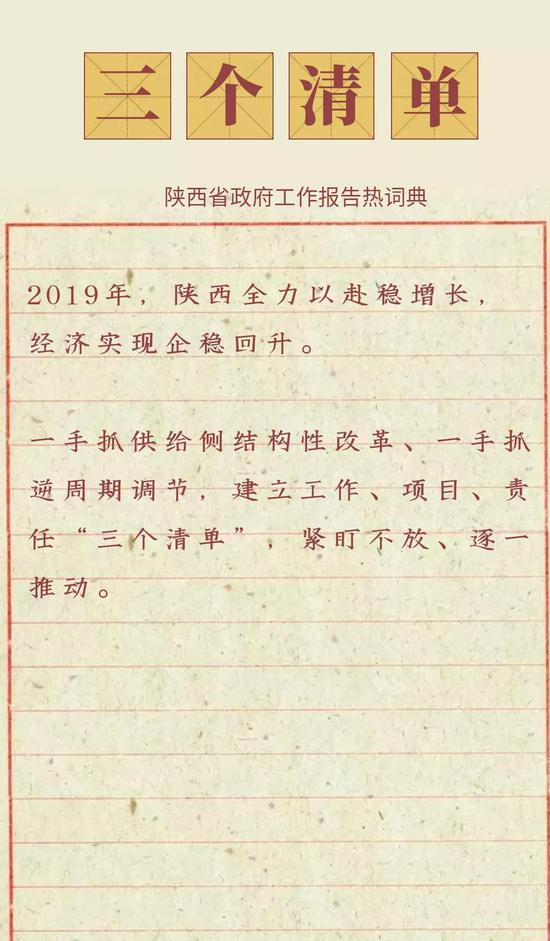 三个清单
陕西省政府工作报告热词典
2019年，陕西全力以赴稳增长，
经济实现企稳回升。
一手抓供给侧结构性改革、一手抓
逆周期调节，建立工作、项目、责
任“三个清单”，紧盯不放、逐一
推动。